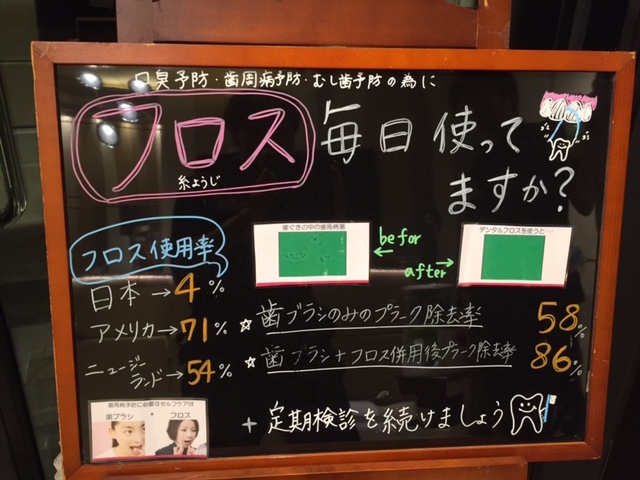 口臭予防・歯周病予防・むし歯予防の為に
フロス
糸ようじ
毎日使って
ますか?
フロス使用率
日本→4%
アメリカ→71%
ニュージーランド→54%
歯ぐきの中の歯周病菌
befor
←
after
→
デンタルフロスを使うと…
☆歯ブラシのみのプラーク除去率 58%
☆歯ブラシ+フロス併用後プラーク除去率 86%
歯周病予防に必要なセルフケアは
歯ブラシ + フロス
+定期検診を続けましょう